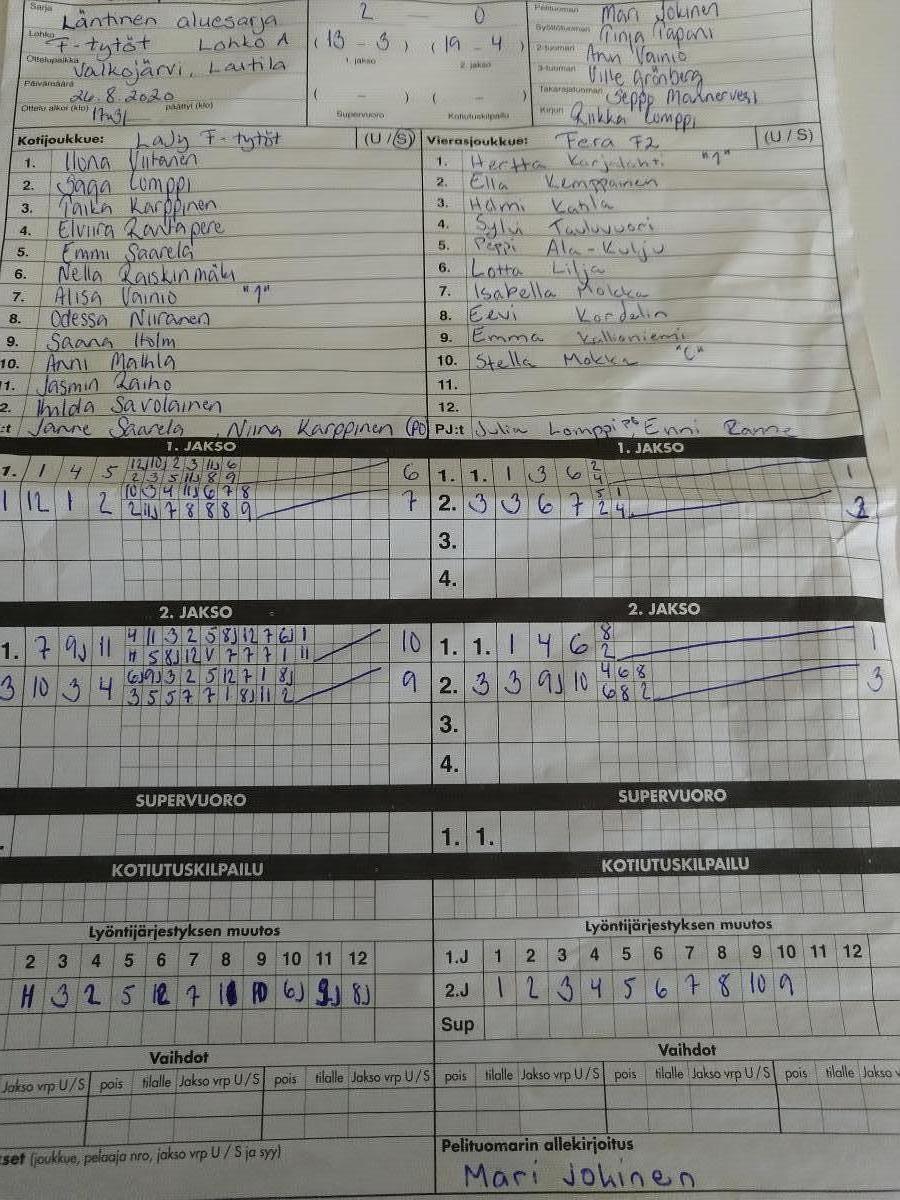 Sarja Läntinen aluesarja
Lohko F-tytöt Lohko A
Ottelupaikka Valkojärvi, Laitila
Päivämäärä 26.8.2020
Ottelu alkoi (klo) päättyi (klo)
2 - 0
(13 - 3) (19 - 4)
1. jakso 2. jakso
( - ) ( - )
Supervuoro Kotiutuskilpailu
Pelituomari Mari Jokinen
Syöttötuomari Tinja Tapani
2-tuomari Ann Vainio
3-tuomari Ville Grönberg
Takarajatuomari Seppo Mannervesi
Kirjuri Riikka Lomppi
Kotijoukkue: LaJy F-tytöt (U / S)
1. Ilona Viitanen
2. Saga Lomppi
3. Taika Karppinen
4. Elviira Rantapere
5. Emmi Saarela
6. Nella Raiskinmäki
7. Alisa Vainio "1"
8. Odessa Niiranen
9. Saana Holm
10. Anni Mathla
1. Jasmin Raiho
2. Ihilda Savolainen
:t Janne Saarela, Niina Karppinen (PJ)
Vierasjoukkue: Fera F2 (U / S)
1. Hertta Karjalahti "1"
2. Ella Kemppainen
3. Helmi Kahla
4. Sylvi Tauluvuori
5. Peppi Ala-Kulju
6. Lotta Lilja
7. Isabella Mokka
8. Eevi Kordelin
9. Emma Kallioniemi
10. Stella Mokka "C"
11.
12.
PJ:t Julia Lomppi Enni Ranne
1. JAKSO 1. JAKSO
1. 1 4 5 12 10 2 3 11J 6 6
2 3 5 11J 8 9
1 12 1 2 10 3 4 11J 6 7 8 7
2 11J 7 8 8 8 9
1. 1. 1 3 6 2 1
4
2. 3 3 6 7 5 1 2
2 4
3.
4.
2. JAKSO 2. JAKSO
1. 7 9J 11 4 11 3 2 5 8J 12 7 6J 1 10
3 10 3 4 6J 9J 3 2 5 12 7 1 8J 9
3 5 5 7 7 1 8J 11 2
1. 1. 1 4 6 8 1
2
2. 3 3 9J 10 4 6 8 3
6 8 2
3.
4.
SUPERVUORO SUPERVUORO
1. 1.
KOTIUTUSKILPAILU KOTIUTUSKILPAILU
Lyöntijärjestyksen muutos Lyöntijärjestyksen muutos
2 3 4 5 6 7 8 9 10 11 12
3 2 5 12 7 10 6J 9J 8J
1.J 1 2 3 4 5 6 7 8 9 10 11 12
2.J 1 2 3 4 5 6 7 8 10 9
Sup
Vaihdot Vaihdot
Jakso vrp U / S pois tilalle Jakso vrp U / S pois tilalle Jakso vrp U / S
pois tilalle Jakso vrp U / S pois tilalle Jakso vrp U / S pois tilalle Jakso v
set (joukkue, pelaaja nro, jakso vrp U / S ja syy)
Pelituomarin allekirjoitus
Mari Jokinen